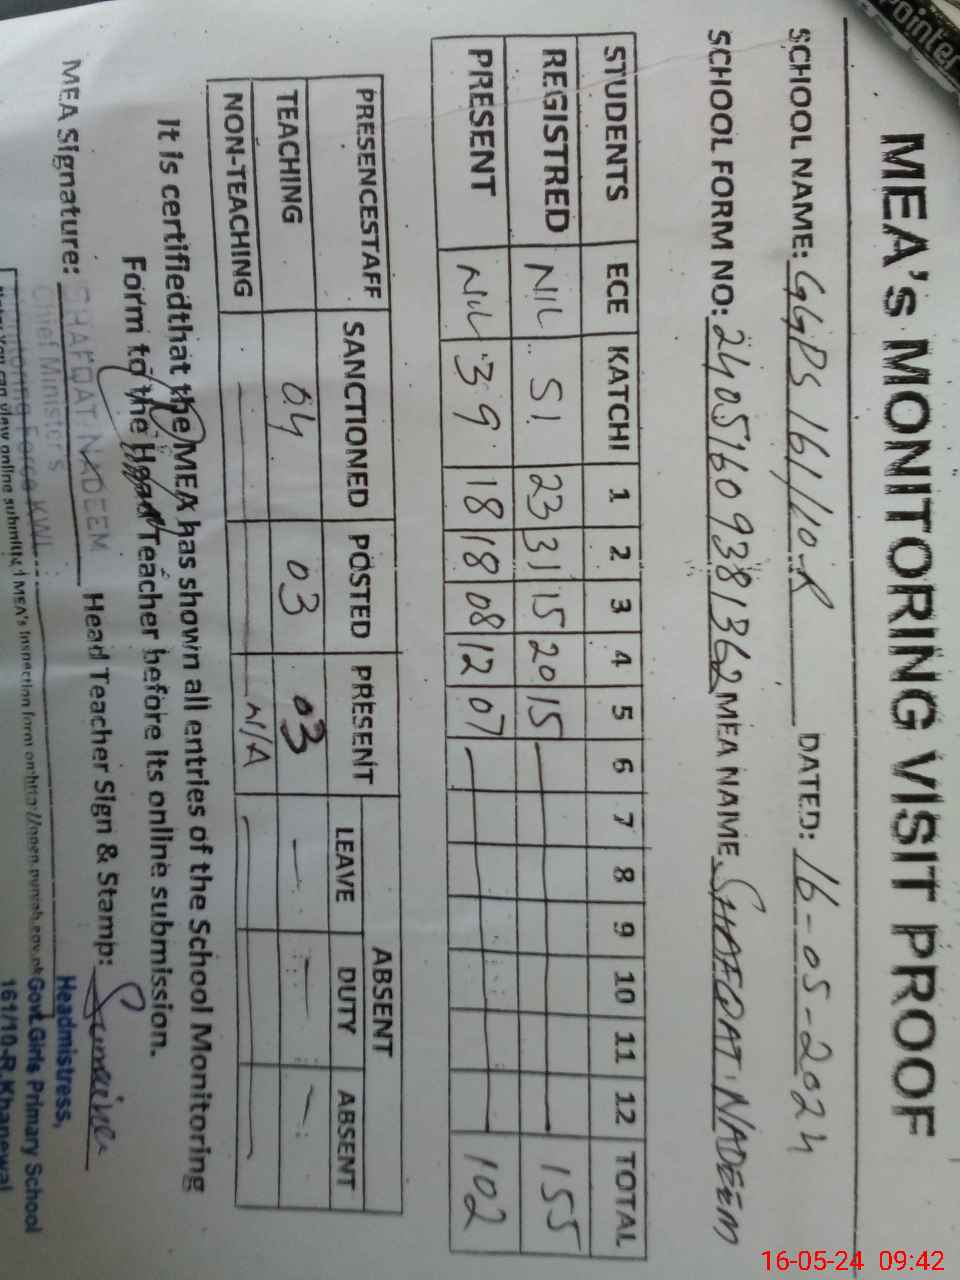 Pointer
MEA's MONITORING VISIT PROOF
SCHOOL NAME: GGPS 161/10-R DATED: 16-05-2024
SCHOOL FORM NO: 24051609381362 MEA NAME SHAFQAT NADEEM
STUDENTS ECE KATCHI 1 2 3 4 5 6 7 8 9 10 11 12 TOTAL
REGISTRED NIL 51 23 31 15 20 15 155
PRESENT NIL 39 18 18 08 12 07 102
PRESENCESTAFF SANCTIONED POSTED PRESENT ABSENT
LEAVE DUTY ABSENT
TEACHING 04 03 03 — — —
NON-TEACHING N/A
It is certifiedthat the MEA has shown all entries of the School Monitoring
Form to the Head Teacher before its online submission.
MEA Signature: SHAFQAT NADEEM Head Teacher Sign & Stamp: Sumaira
Chief Minister's
Force KWL
Headmistress,
Govt. Girls Primary School
161/10-R.Khanewal
you can view online MEA's Inspection form on
16-05-24 09:42